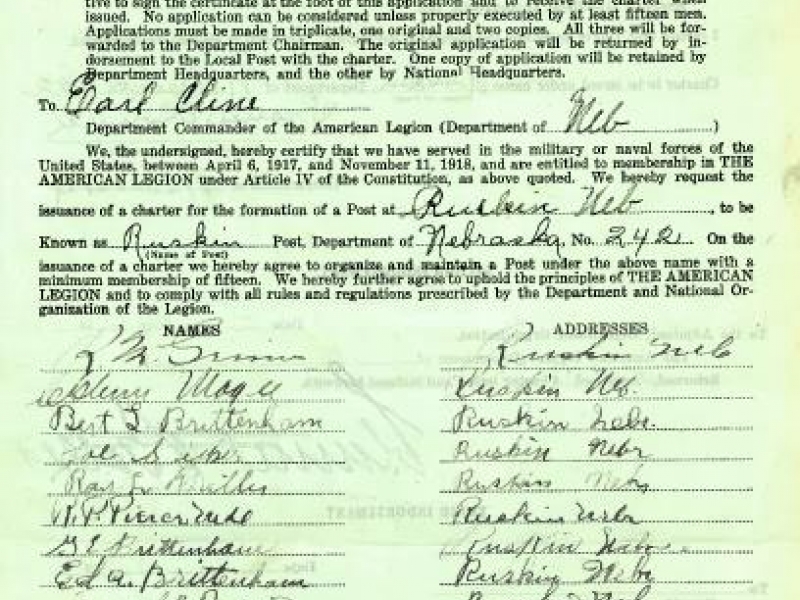 tive to sign the certificate at the foot of this application and to receive the charter when
issued. No application can be considered unless properly executed by at least fifteen men.
Applications must be made in triplicate, one original and two copies. All three will be for-
warded to the Department Chairman. The original application will be returned by in-
dorsement to the Local Post with the charter. One copy of application will be retained by
Department Headquarters, and the other by National Headquarters.
To Earl Cline
Department Commander of the American Legion (Department of Neb)
We, the undersigned, hereby certify that we have served in the military or naval forces of the
United States, between April 6, 1917, and November 11, 1918, and are entitled to membership in THE
AMERICAN LEGION under Article IV of the Constitution, as above quoted. We hereby request the
issuance of a charter for the formation of a Post at Ruskin Neb, to be
Known as Ruskin Post, Department of Nebraska, No. 242. On the
(Name of Post)
issuance of a charter we hereby agree to organize and maintain a Post under the above name with a
minimum membership of fifteen. We hereby further agree to uphold the principles of THE AMERICAN
LEGION and to comply with all rules and regulations prescribed by the Department and National Or-
ganization of the Legion.
NAMES ADDRESSES
Ruskin Neb
Magee Ruskin Neb.
Bert Brittenham Ruskin Nebr.
Ruskin Nebr
Ray Ruskin Nebr
Ruskin Nebr
Brittenham Ruskin Nebr
Ed A. Brittenham Ruskin Nebr